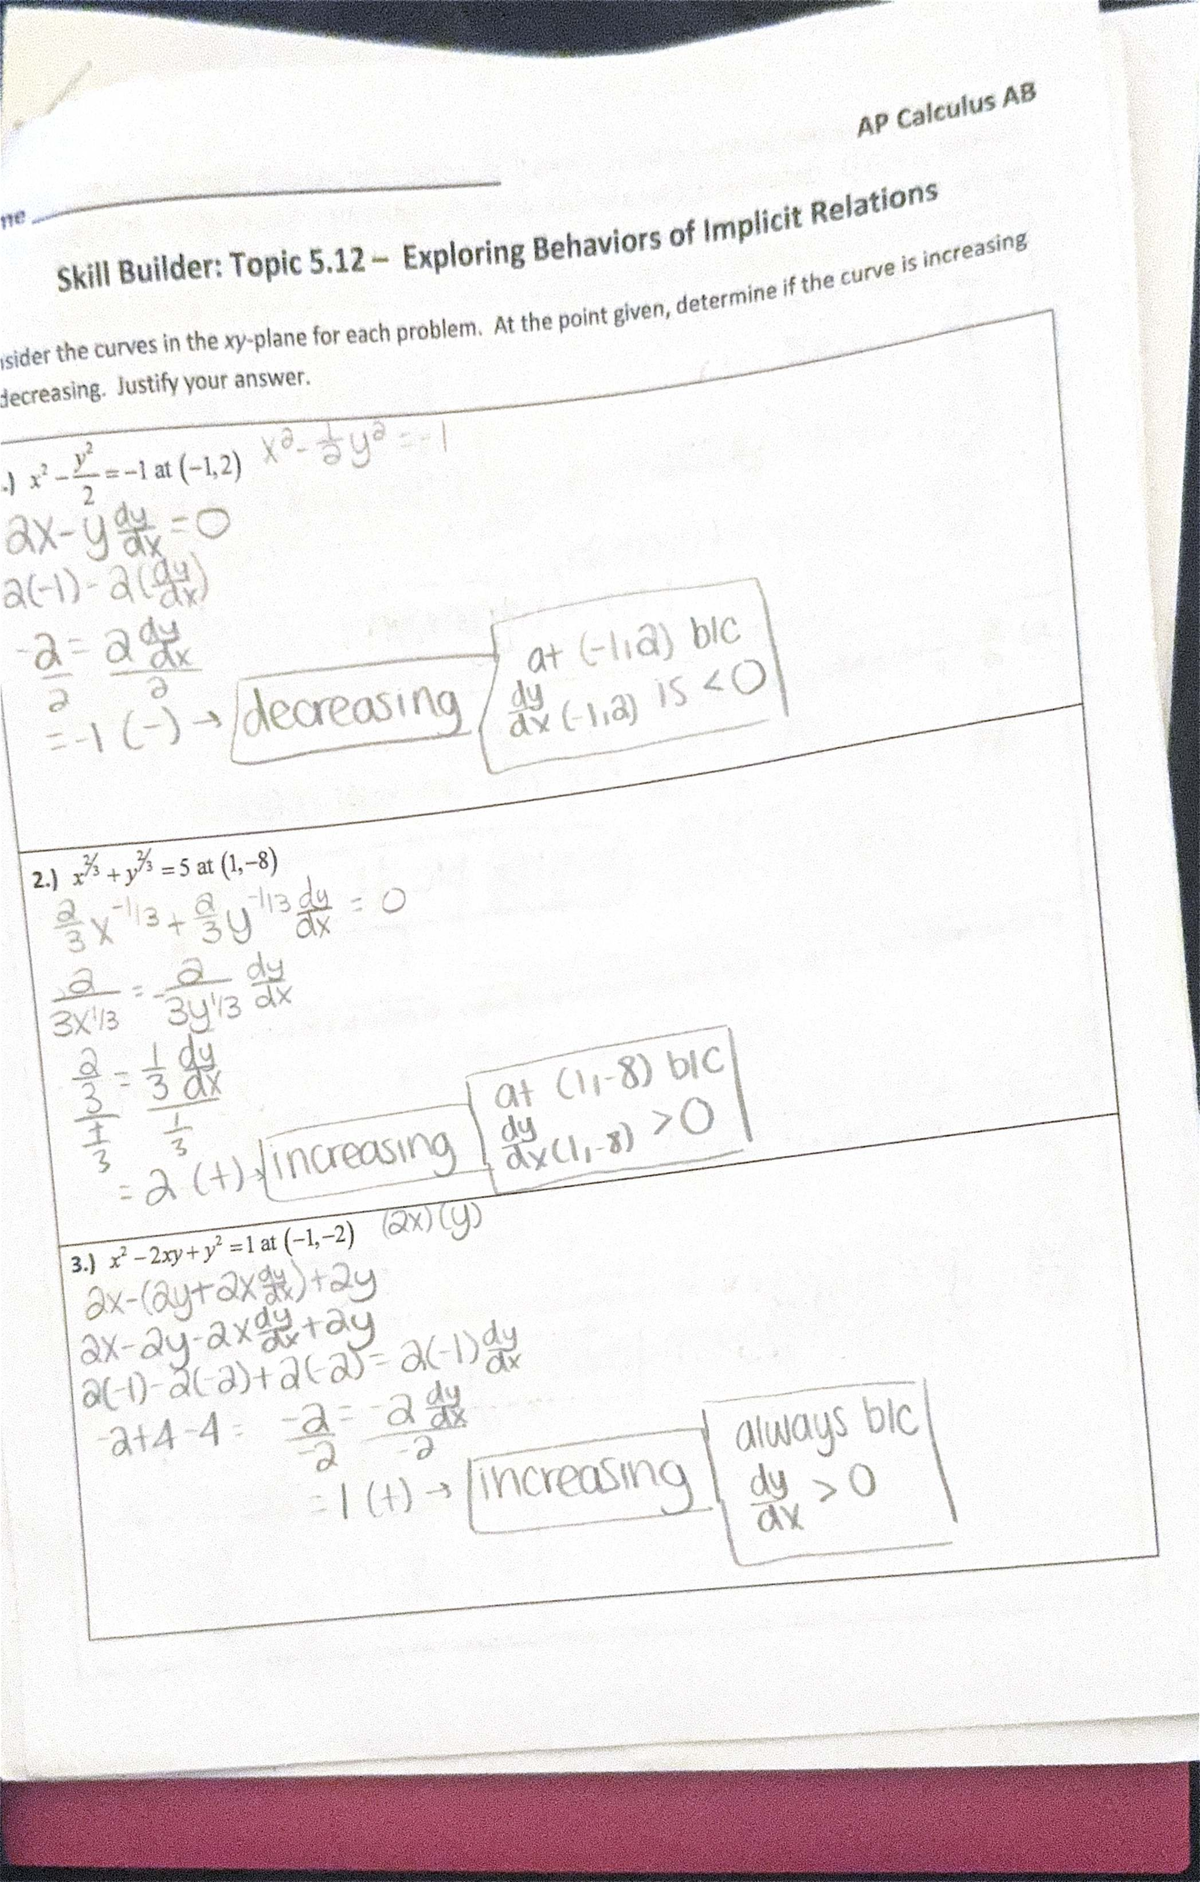 AP Calculus AB
me
Skill Builder: Topic 5.12 – Exploring Behaviors of Implicit Relations
nsider the curves in the xy-plane for each problem. At the point given, determine if the curve is increasing
decreasing. Justify your answer.
.) x² − y²/2 = −1 at (−1,2) x² - 1/2 y² = -1
2x - y dy/dx = 0
2(-1) - 2(dy/dx)
-2/2 = 2 dy/dx / 2
= -1 (-) → decreasing at (-1,2) b/c dy/dx (-1,2) is < 0
2.) x^(2/3) + y^(2/3) = 5 at (1,−8)
2/3 x^(-1/3) + 2/3 y^(-1/3) dy/dx = 0
2/(3x^(1/3)) = - 2/(3y^(1/3)) dy/dx
2/3 / 1/3 = 1/3 dy/dx / 1/3
= 2 (+) → increasing at (1,-8) b/c dy/dx (1,-8) > 0
3.) x² − 2xy + y² = 1 at (−1,−2) (2x)(y)
2x-(2y+2x dy/dx)+2y
2x-2y-2x dy/dx +2y
2(-1)-2(-2)+2(-2) = 2(-1) dy/dx
-2+4-4 = -2/-2 = -2 dy/dx / -2
= 1 (+) → increasing always b/c dy/dx > 0